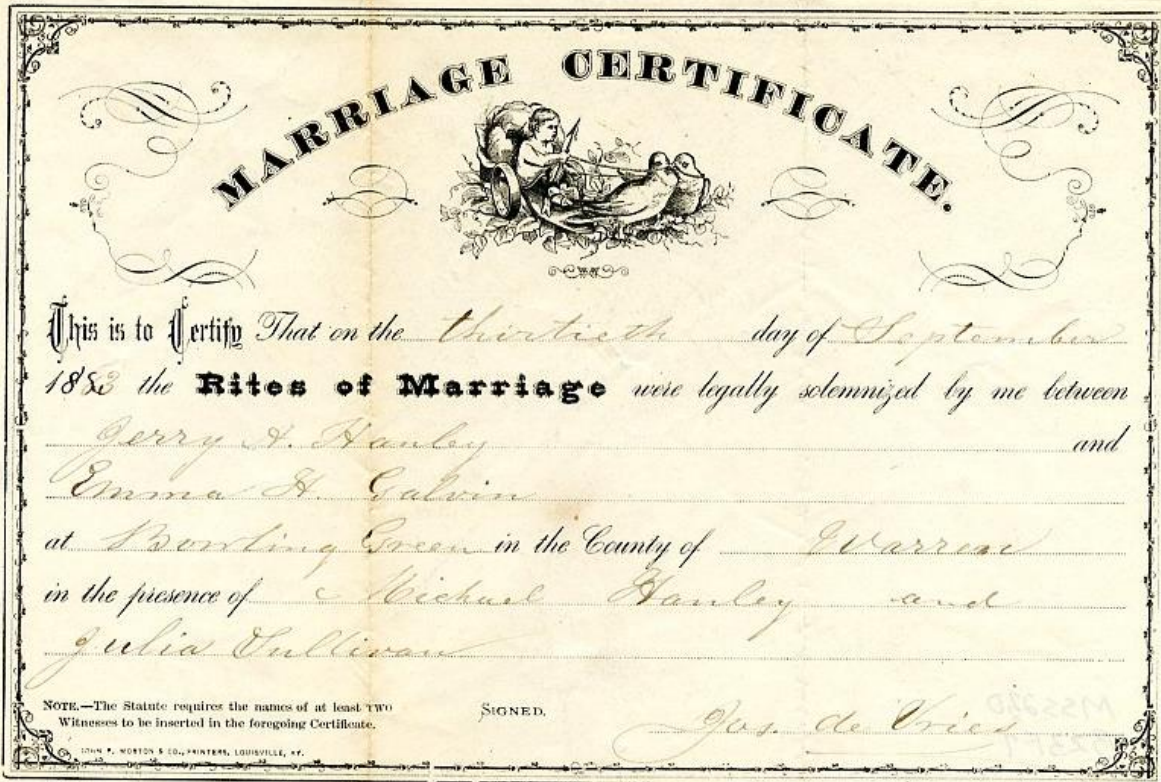 MARRIAGE CERTIFICATE.
This is to Certify That on the thirtieth day of September
1883 the Rites of Marriage were legally solemnized by me between
Jerry A. Hanley and
Emma H. Galvin
at Bowling Green in the County of Warren
in the presence of Michael Hanley and
Julia Sullivan
NOTE.—The Statute requires the names of at least TWO
Witnesses to be inserted in the foregoing Certificate.
SIGNED.
Jos. de Vries
JOHN P. MORTON & CO., PRINTERS, LOUISVILLE, KY.